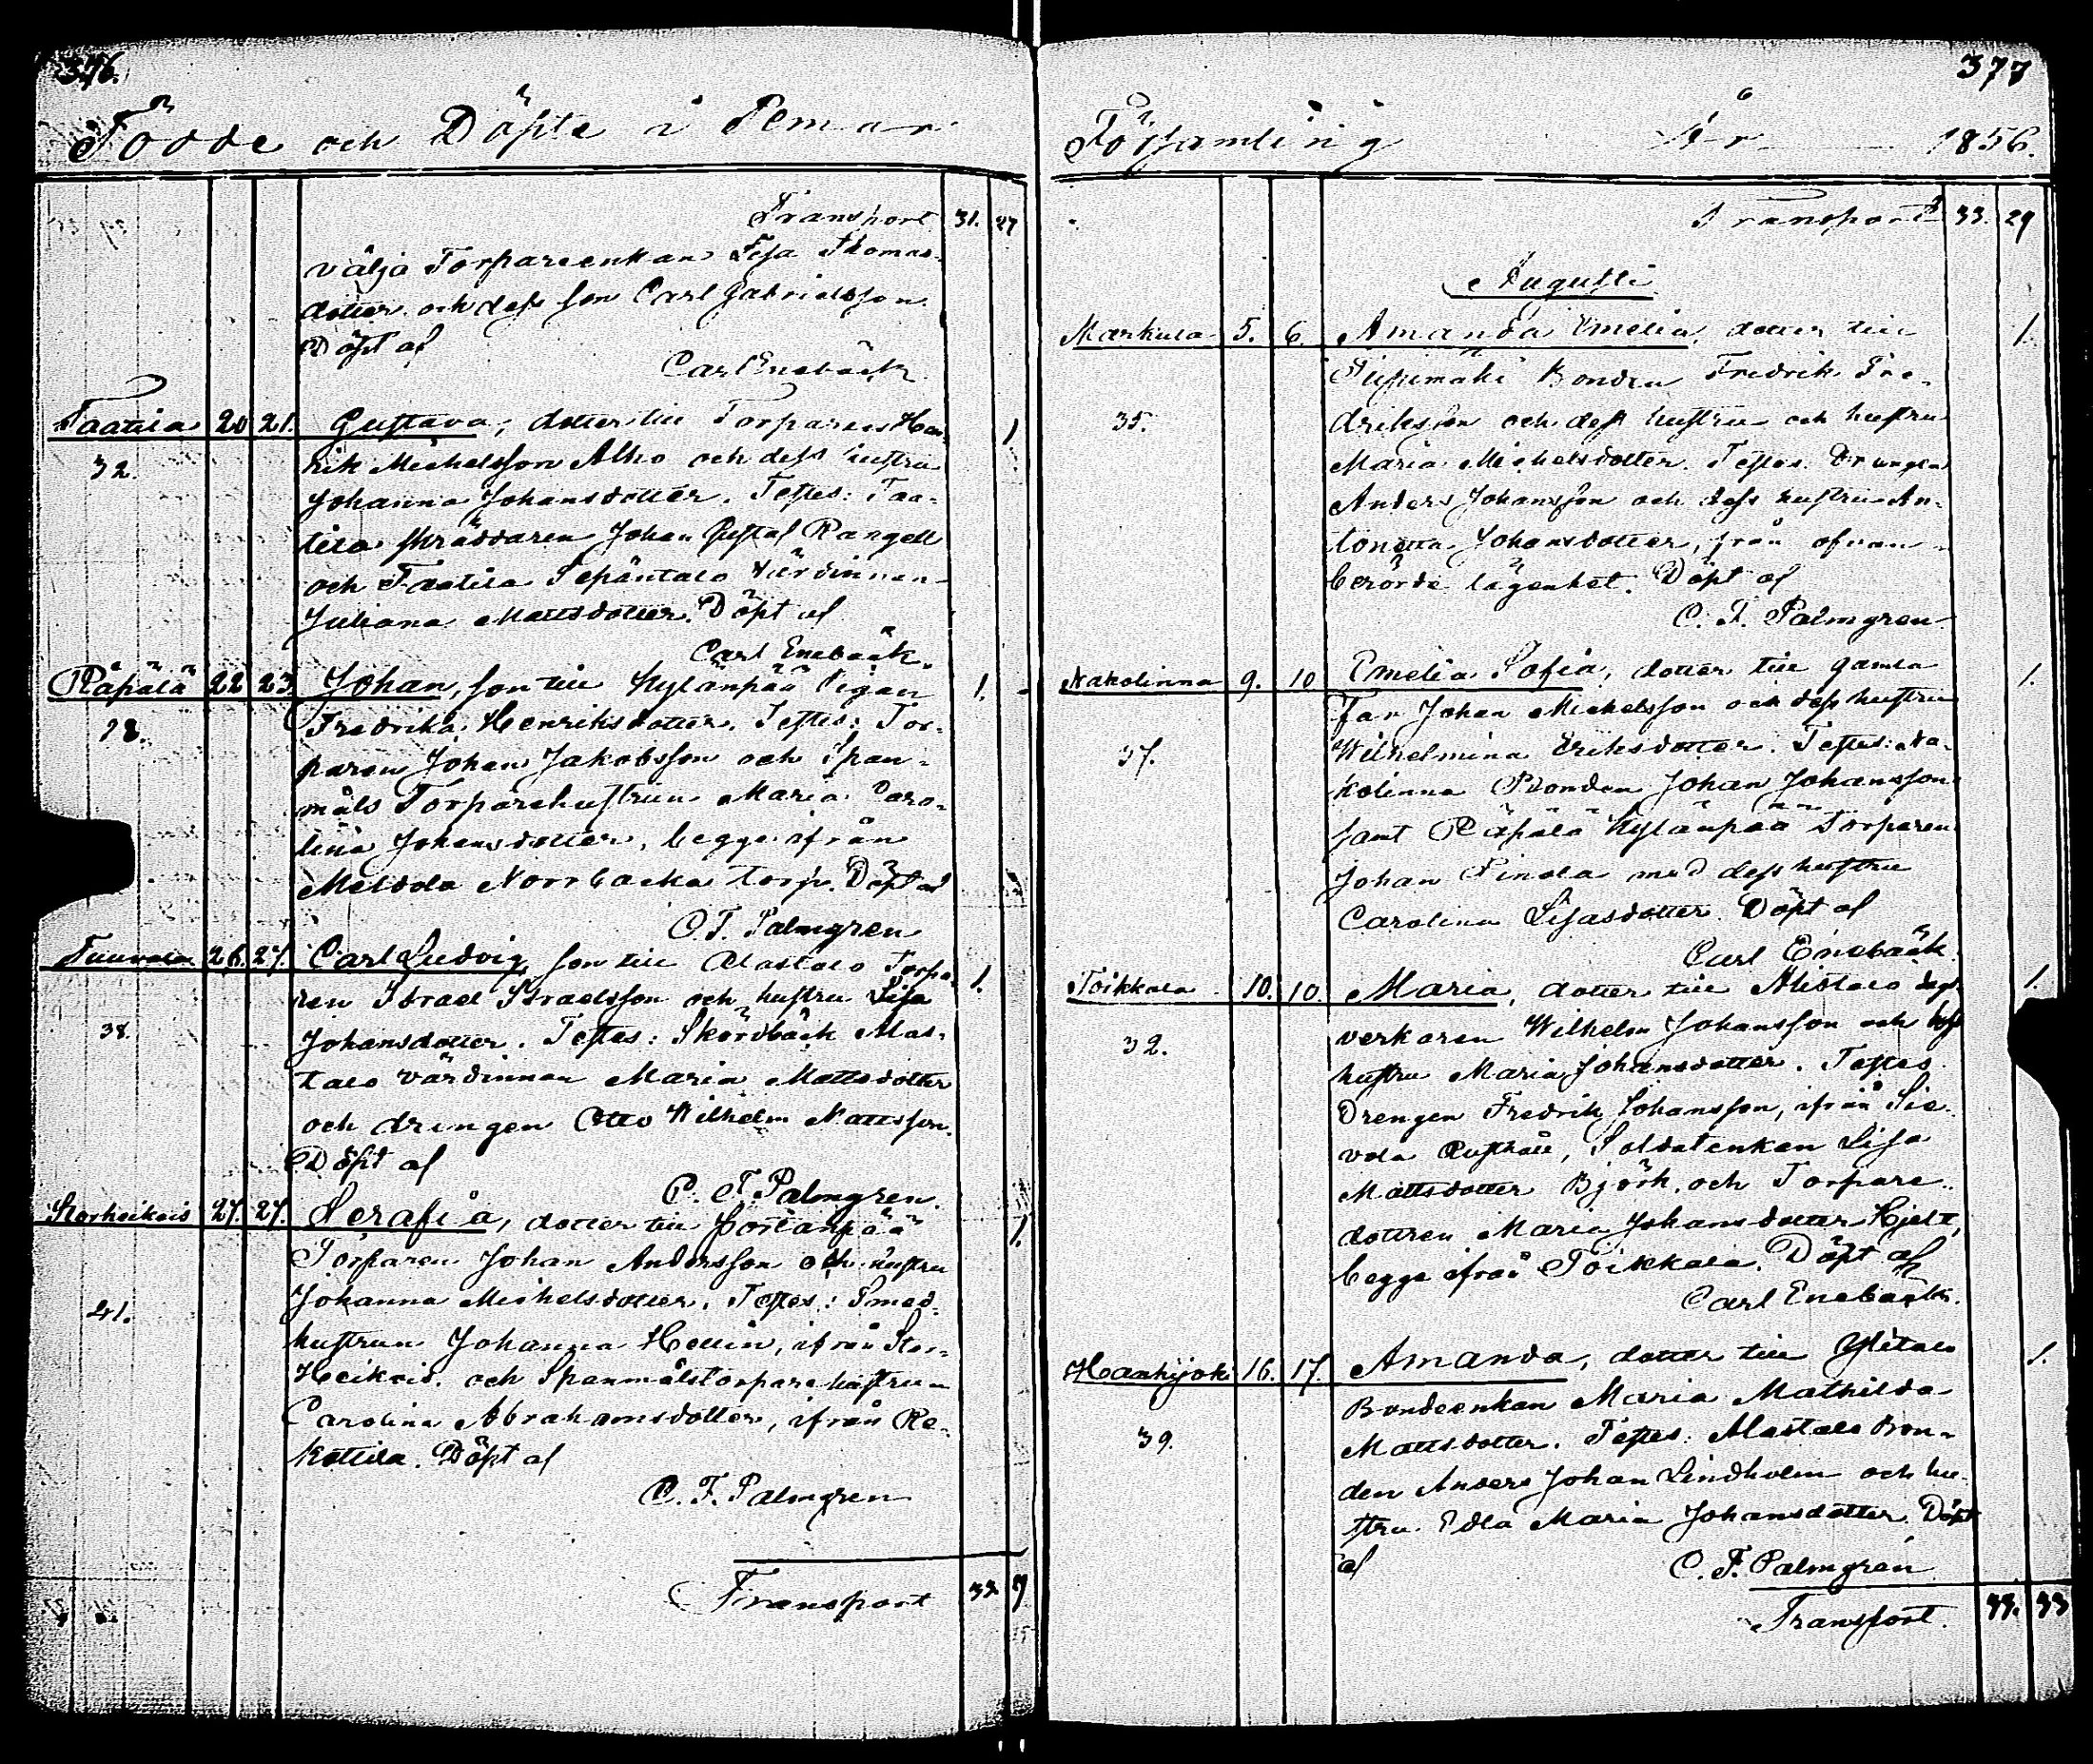 376.
Födde och Döpte i Pemar
Transport 31. 27
välja Torpareenkan Lisa Thomas-
dotter och dess son Carl Gabrielsson.
Döpt af
Carl Enebäck
Taatila 20 21. Gustava, dotter till Torparen Hen- 1.
32. rik Michelsson Alho och dess hustru
Johanna Johansdotter. Testes: Taa-
tila skräddaren Johan Gustaf Rangell
och Taatila Sepäntalo Värdinnan
Juliana Mattsdotter. Döpt af
Carl Enebäck.
Räpälä 22 23 Johan, son till Kylänpää Pigan 1.
28. Fredrika Henriksdotter. Testes: Tor-
paren Johan Jakobsson och Span-
måls Torparehustrun Maria Caro-
lina Johansdotter, begge ifrån
Meldola Norrbacka torp. Döpt af
C. F. Palmgren
26. 27. Carl Ludvig, son till Alastalo Torpa- 1.
ren Israel Israelsson och hustru Lisa
38. Johansdotter. Testes: Skördbäck Alas-
talo värdinnan Maria Mattsdotter
och drengen Otto Wilhelm Mattsson.
Döpt af
C. F. Palmgren.
Storheikois 27. 27. Serafia, dotter till 1.
Torparen Johan Andersson och hustru
Johanna Michelsdotter. Testes: Smed-
41. hustrun Johanna Hellin, ifrån Stor-
Heikois och Spanmålstorparehustrun
Carolina Abrahamsdotter, ifrån Re-
kottila. Döpt af
C. F. Palmgren
Transport 33.
377
Församling År 1856.
Transport 33. 29
Augusti
Markula 5. 6. Amanda Emelia, dotter till 1.
Bonden Fredrik Fre-
35. driksson och dess hustru och hustru
Maria Michelsdotter. Testes: Drengen
Anders Johansson och dess hustru An-
tonetta Johansdotter, från ofvan-
berörde lägenhet. Döpt af
C. F. Palmgren
Nakolinna 9. 10 Emelia Sofia, dotter till gamla 1.
Far Johan Michelsson och dess hustru
37. Wilhelmina Eriksdotter. Testes: Na-
kolinna Bonden Johan Johansson
samt Räpälä Kylänpää Torparen
Johan Pinola med dess hustru
Carolina Lisasdotter. Döpt af
Carl Enebäck
Toikkala 10. 10. Maria, dotter till Alistalo dags- 1.
verkaren Wilhelm Johansson och dess
32. hustru Maria Johansdotter. Testes
Drengen Fredrik Johansson, ifrån Sie-
vola Rusthåll, Soldatenkan Lisa
Mattsdotter Björk, och Torpare-
dottren Maria Johansdotter Hjelt,
begge ifrån Toikkala. Döpt af
Carl Enebäck.
Haarkijoki 16. 17. Amanda, dotter till Ylitalo 1.
Bondeenkan Maria Mathilda
39. Mattsdotter. Testes: Alastalo Bon-
den Anders Johan Lindholm och hu-
stru Edla Maria Johansdotter. Döpt
af C. F. Palmgren
Transport. 33. 33